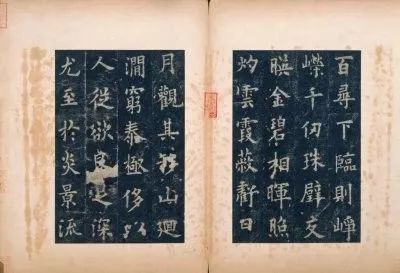 百尋下臨則崢
嶸千仞珠璧交
暎金碧相暉照
灼雲霞蔽虧日
月觀其移山迴
澗窮泰極侈以
人從欲良足深
尤至於炎景流